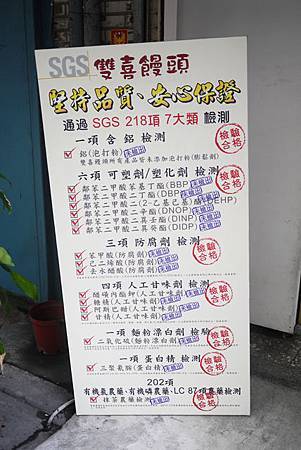 SGS 雙喜饅頭
堅持品質、安心保證
通過 SGS 218項 7大類 檢測
一項 含 鋁 檢測
檢驗合格
鋁(泡打粉) 未檢出
雙喜饅頭所有產品皆未添加泡打粉(膨鬆劑)
六項 可塑劑/塑化劑 檢測
檢驗合格
鄰苯二甲酸苯基丁酯(BBP) 未檢出
鄰苯二甲酸二丁酯(DBP) 未檢出
鄰苯二甲酸二(2-乙基己基)酯(DEHP)
鄰苯二甲酸二辛酯(DNOP) 未檢出
鄰苯二甲酸二異壬酯(DINP) 未檢出
鄰苯二甲酸二異癸酯(DIDP) 未檢出
三項 防腐劑 檢測
檢驗合格
苯甲酸(防腐劑) 未檢出
己二烯酸(防腐劑) 未檢出
去水醋酸(防腐劑) 未檢出
四項 人工甘味劑 檢測
檢驗合格
醋磺內酯鉀(人工甘味劑) 未檢出
糖精(人工甘味劑) 未檢出
阿斯巴甜(人工甘味劑) 未檢出
甘精(人工甘味劑) 未檢出
一項 麵粉漂白劑 檢驗
檢驗合格
二氧化硫(麵粉漂白劑) 未檢出
一項 蛋白精 檢測
檢驗合格
三聚氰胺(蛋白精) 未檢出
202項
有機氯農藥、有機磷農藥、LC 87項農藥檢測
檢驗合格
抹茶農藥檢測 未檢出